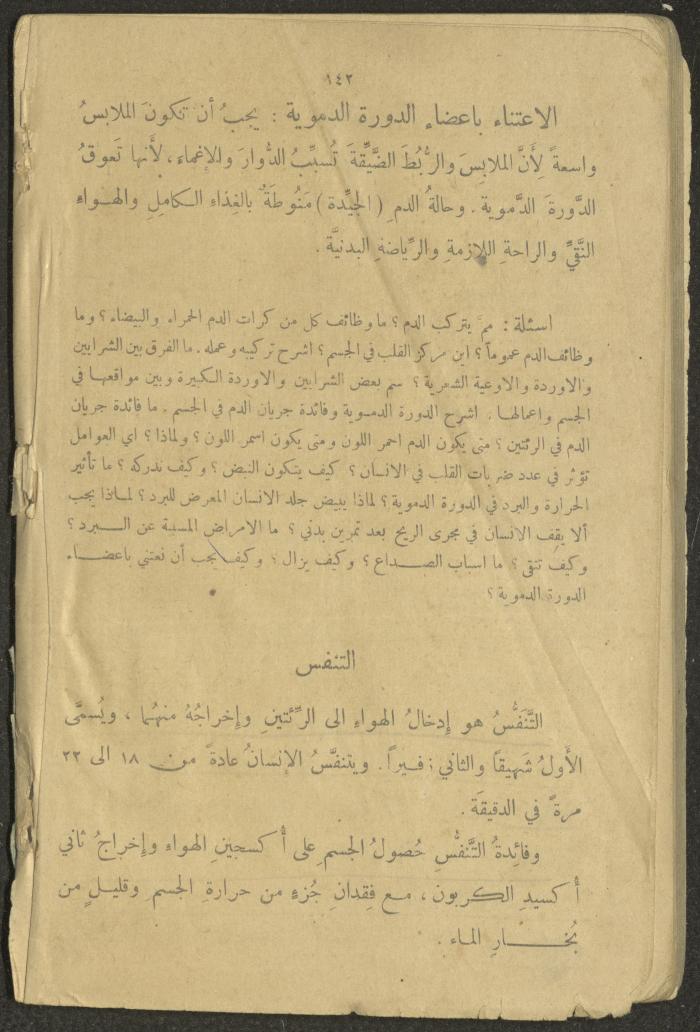 ١٤٢
الاعتناء باعضاء الدورة الدموية : يجبُ أن تكونَ الملابسُ
واسعةً لِأَنَّ الملابِسَ والرُّبُطَ الضَّيِّقةَ تُسبِّبُ الدُّوارَ والإغماء، لأَنها تَعوقُ
الدَّورةَ الدَّموية . وحالةُ الدم ِ (الجيِّدة) مَنُوطةٌ بالغِذاءِ الكاملِ والهواءِ
النَّقيِّ والراحةِ اللازمةِ والرِّياضةِ البدنيَّة .
اسئلة : ممَّ يتركب الدم ؟ ما وظائف كل من كرات الدم الحمراء والبيضاء ؟ وما
وظائف الدم عموماً ؟ اين مركز القلب في الجسم ؟ اشرح تركيبه وعمله . ما الفرق بين الشرايين
والاوردة والاوعية الشعرية ؟ سم بعض الشرايين والاوردة الكبيرة وبين مواقعها في
الجسم واعمالها . اشرح الدورة الدموية وفائدة جريان الدم في الجسم . ما فائدة جريان
الدم في الرئتين ؟ متى يكون الدم احمر اللون ومتى يكون اسمر اللون ؟ ولماذا ؟ اي العوامل
تؤثر في عدد ضربات القلب في الانسان ؟ كيف يتكون النبض ؟ وكيف ندركه ؟ ما تأثير
الحرارة والبرد في الدورة الدموية ؟ لماذا يبيض جلد الانسان المعرض للبرد ؟ لماذا يجب
ألا يقف الانسان في مجرى الريح بعد تمرين بدني ؟ ما الامراض المسببة عن البرد ؟
وكيف تتقى ؟ ما اسباب الصداع ؟ وكيف يزال ؟ وكيف يجب أن نعتني باعضاء
الدورة الدموية ؟
التنفس
التَّنَفُّسُ هو إدخالُ الهواءِ الى الرِّئتينِ وإخراجُهُ منهُما ، ويُسمَّى
الأَولُ شَهيقاً والثاني زفيراً . ويتنفَّسُ الإنسانُ عادةً من ١٨ الى ٢٢
مرةً في الدقيقَة .
وفائِدةُ التَّنفُّسِ حُصولُ الجسمِ على أُكسجينِ الهواءِ وإخراجُ ثاني
أُكسيدِ الكربون ، مع فِقدانِ جُزءٍ من حرارةِ الجسمِ وقليلٍ من
بُخارِ الماء .